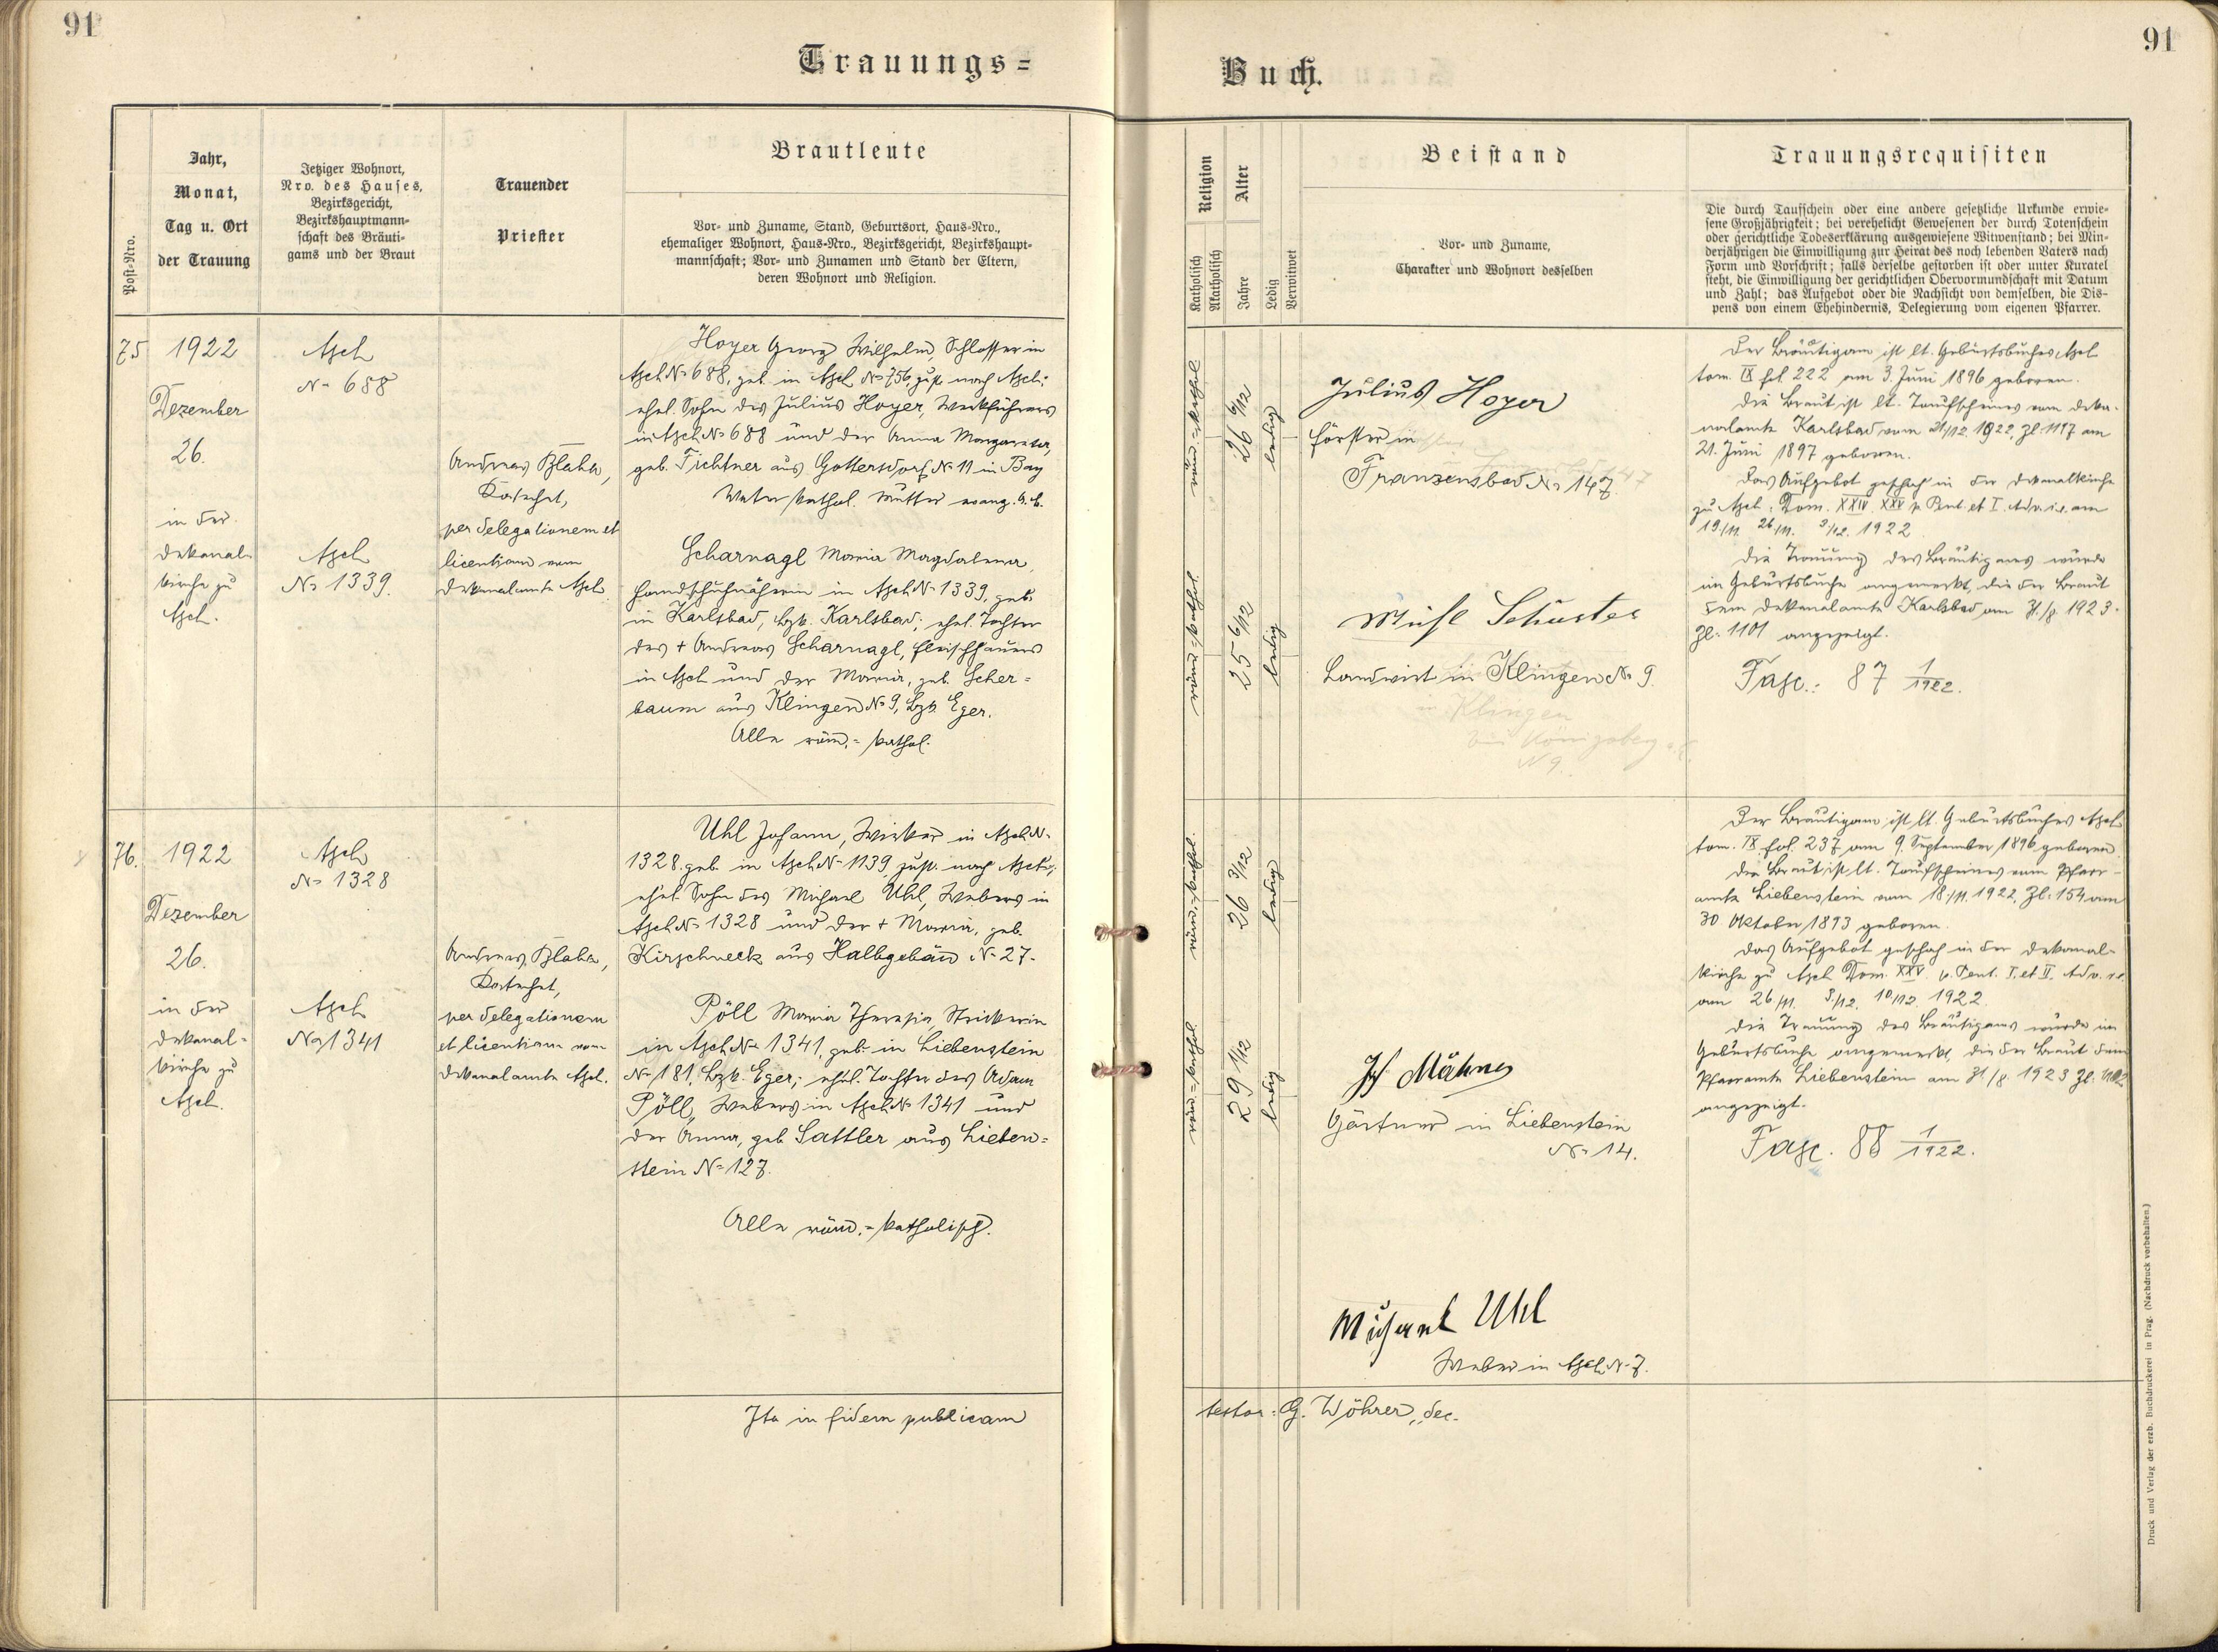 91
Trauungs=
Post-Nro.
Jahr,
Monat,
Tag u. Ort
der Trauung
Jetziger Wohnort,
Nro. des Hauses,
Bezirksgericht,
Bezirkshauptmann-
schaft des Bräuti-
gams und der Braut
Trauender
Priester
Brautleute
Vor- und Zuname, Stand, Geburtsort, Haus-Nro.,
ehemaliger Wohnort, Haus-Nro., Bezirksgericht, Bezirkshaupt-
mannschaft; Vor- und Zunamen und Stand der Eltern,
deren Wohnort und Religion.
75
1922
Dezember
26.
in der
Dekanal-
kirche zu
Asch.
Asch
No 688
Asch
No 1339.
Andreas Blaha,
Katechet,
per delegationem et
licentiam vom
Dekanalamte Asch.
Hoyer Georg Wilhelm, Schlosser in
Asch No 688, geb. in Asch No 756, zust. nach Asch;
ehel. Sohn des Julius Hoyer, Werkführers
in Asch No 688 und der Anna Margareta,
geb. Fichtner aus Gottersdorf No 11 in Bay
Vater kathol. Mutter evang. A. C.
Scharnagl Maria Magdalena
Handschuhnäherin in Asch No 1339, geb.
in Karlsbad, Bzk. Karlsbad; ehel. Tochter
des + Andreas Scharnagl, Fleischhauers
in Asch und der Maria, geb. Scher=
baum aus Klingen No 9, Bzk. Eger.
Alle röm.=kathol.
76.
1922
Dezember
26.
in der
Dekanal=
kirche zu
Asch.
Asch
No 1328
Asch
No 1341
Andreas Blaha,
Katechet,
per delegationem
et licentiam vom
Dekanalamte Asch.
Uhl Johann, Wirker in Asch No
1328, geb. in Asch No 1139, zust. nach Asch;
ehel. Sohn des Michael Uhl, Webers in
Asch No 1328 und der + Maria, geb.
Kirschneck aus Halbgebäu No 27.
Pöll Maria Theresia, Strickerin
in Asch No 1341, geb. in Liebenstein
No 181, Bzk. Eger; ehel. Tochter des Adam
Pöll, Webers in Asch No 1341 und
der Anna, geb. Sattler aus Lieben=
stein No 127.
Alle röm.=katholisch.
Ita in fidem publicam
91
Buch.
Religion
Katholisch
Akatholisch
Alter
Jahre
Ledig
Verwitwet
Beistand
Vor- und Zuname,
Charakter und Wohnort desselben
Trauungsrequisiten
Die durch Taufschein oder eine andere gesetzliche Urkunde erwie-
sene Großjährigkeit; bei verehelicht Gewesenen der durch Totenschein
oder gerichtliche Todeserklärung ausgewiesene Witwenstand; bei Min-
derjährigen die Einwilligung zur Heirat des noch lebenden Vaters nach
Form und Vorschrift; falls derselbe gestorben ist oder unter Kuratel
steht, die Einwilligung der gerichtlichen Obervormundschaft mit Datum
und Zahl; das Aufgebot oder die Nachsicht von demselben, die Dis-
pens von einem Ehehindernis, Delegierung vom eigenen Pfarrer.
röm.=kathol.
26 6/12
ledig
Julius Hoyer
Förster in
Franzensbad No 147
röm.=kathol.
25 6/12
ledig
Schuster
Landwirt in Klingen No 9.
in Klingen
bei Königsberg a. E.
N 9.
Der Bräutigam ist lt. Geburtsbuches Asch
tom. IX fol. 222 am 3. Juni 1896 geboren.
Die Braut ist lt. Taufscheines vom Deka-
nalamte Karlsbad vom 21/12. 1922, Zl. 1117 am
21. Juni 1897 geboren.
Das Aufgebot geschah in der Dekanalkirche
zu Asch: Dom. XXIV. XXV p. Pent. et I. Adv. i. e. am
19./11. 26./11. 3./12. 1922
Die Trauung des Bräutigams wurde
im Geburtsbuche angemerkt, die der Braut
dem Dekanalamte Karlsbad am 31./8. 1923.
Zl. 1101 angezeigt.
Fasc.: 87 1/1922.
röm.=kathol.
26 3/12
ledig
röm.=kathol.
29 1/12
ledig
Jos. Mähner
Gärtner in Liebenstein
No 14.
Michael Uhl
Weber in Asch No 7.
Der Bräutigam ist lt. Geburtsbuches Asch
tom. IX. fol. 237 am 9. September 1896 geboren.
Die Braut ist lt. Taufscheines vom Pfarr-
amte Liebenstein vom 18./11. 1922, Zl. 154 am
30 Oktober 1893 geboren.
Das Aufgebot geschah in der Dekanal-
kirche zu Asch Dom. XXV. p. Pent. I. et II. Adv. i. e.
am 26./11. 3./12. 10./12. 1922.
Die Trauung des Bräutigams wurde im
Geburtsbuche angemerkt, die der Braut dem
Pfarramte Liebenstein am 31./8. 1923 Zl. 1102
angezeigt.
Fasc. 88 1/1922.
testor: G. Wöhrer, dec.
Druck und Verlag der erzb. Buchdruckerei in Prag. (Nachdruck vorbehalten.)